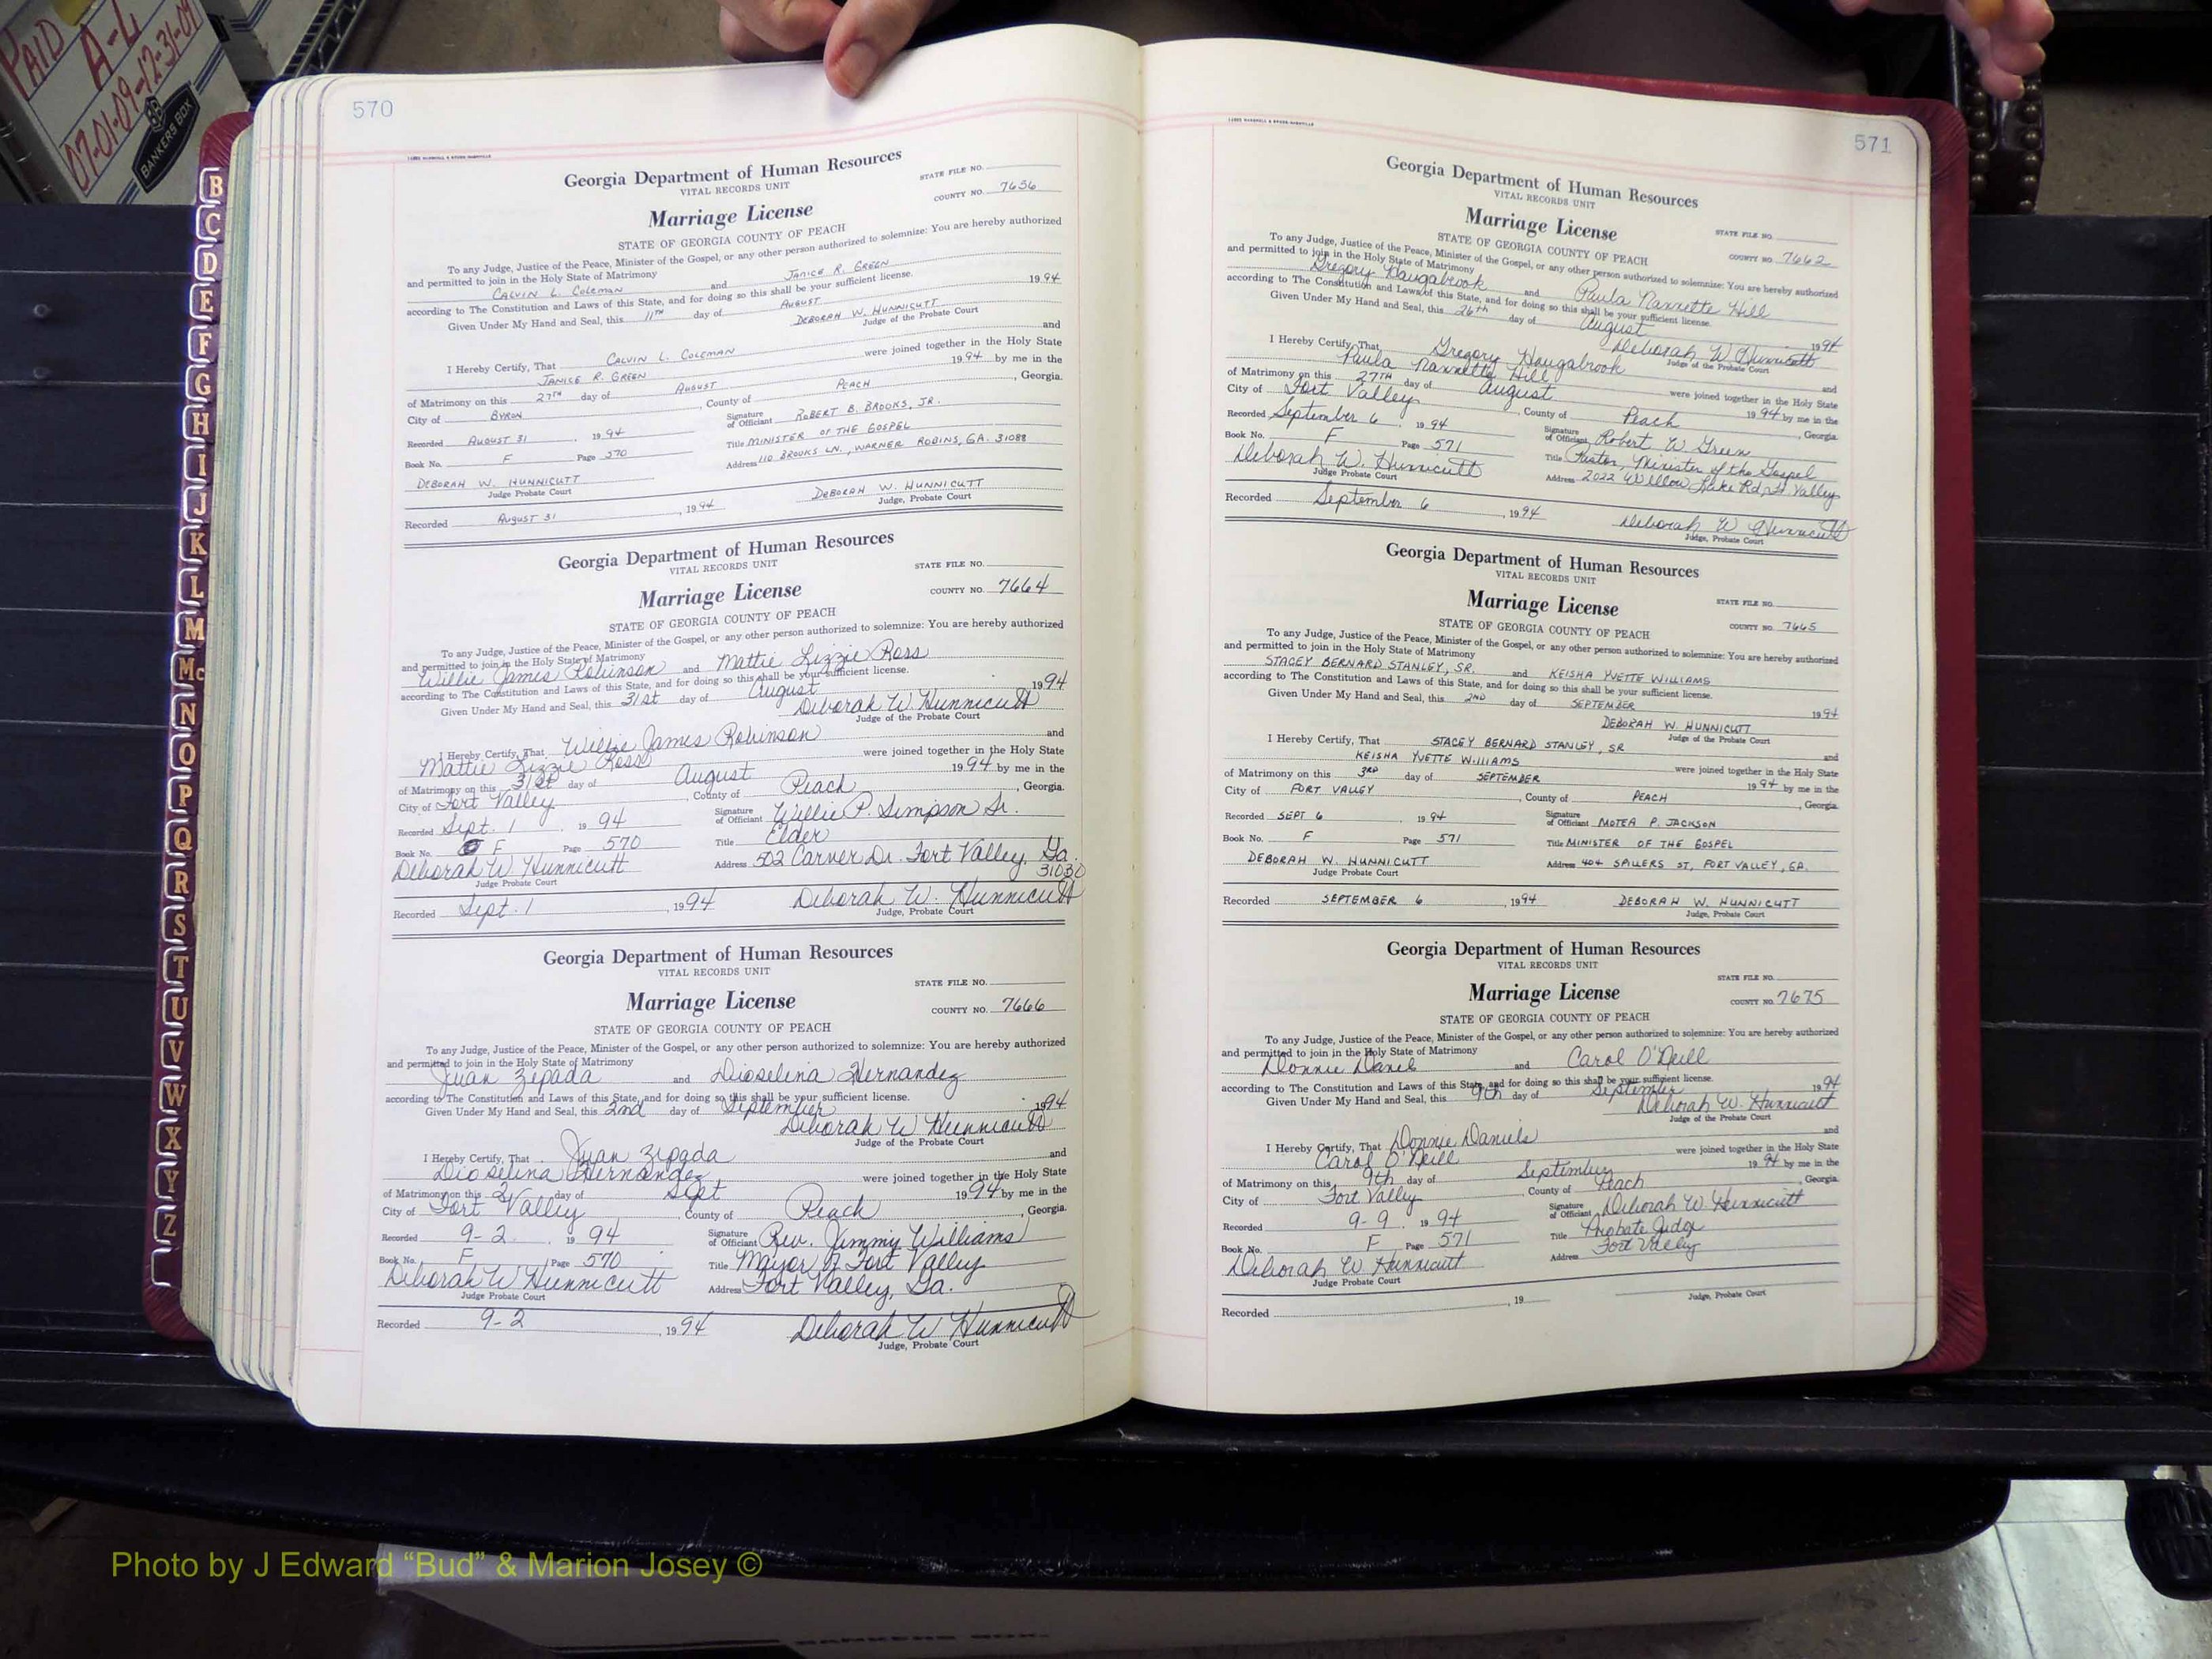 PAID
A-L
07-01-09-12-31-09
BANKERS BOX
B
C
D
E
F
G
H
I
J
K
L
M
Mc
N
O
P
Q
R
S
T
U
V
W
X
Y
Z
570
Georgia Department of Human Resources
VITAL RECORDS UNIT
STATE FILE NO.
COUNTY NO. 7656
Marriage License
STATE OF GEORGIA COUNTY OF PEACH
To any Judge, Justice of the Peace, Minister of the Gospel, or any other person authorized to solemnize: You are hereby authorized
and permitted to join in the Holy State of Matrimony
CALVIN L. COLEMAN and JANICE R. GREEN
according to The Constitution and Laws of this State, and for doing so this shall be your sufficient license.
Given Under My Hand and Seal, this 11TH day of AUGUST 1994
DEBORAH W. HUNNICUTT
Judge of the Probate Court
I Hereby Certify, That CALVIN L. COLEMAN and
JANICE R. GREEN were joined together in the Holy State
of Matrimony on this 27TH day of AUGUST 1994 by me in the
City of BYRON, County of PEACH, Georgia.
Recorded AUGUST 31, 1994 Signature of Officiant ROBERT B. BROOKS, JR.
Book No. F Page 570 Title MINISTER OF THE GOSPEL
Address 110 BROOKS LN., WARNER ROBINS, GA. 31088
DEBORAH W. HUNNICUTT
Judge Probate Court
Recorded AUGUST 31, 1994 DEBORAH W. HUNNICUTT
Judge, Probate Court
Georgia Department of Human Resources
VITAL RECORDS UNIT
STATE FILE NO.
COUNTY NO. 7664
Marriage License
STATE OF GEORGIA COUNTY OF PEACH
To any Judge, Justice of the Peace, Minister of the Gospel, or any other person authorized to solemnize: You are hereby authorized
and permitted to join in the Holy State of Matrimony
Willie James Robinson and Mattie Lizzie Ross
according to The Constitution and Laws of this State, and for doing so this shall be your sufficient license.
Given Under My Hand and Seal, this 31st day of August 1994
Deborah W. Hunnicutt
Judge of the Probate Court
I Hereby Certify, That Willie James Robinson and
Mattie Lizzie Ross were joined together in the Holy State
of Matrimony on this 31st day of August 1994 by me in the
City of Fort Valley, County of Peach, Georgia.
Recorded Sept. 1, 1994 Signature of Officiant Willie P. Simpson Sr.
Book No. F Page 570 Title Elder
Address 502 Carver Dr. Fort Valley, Ga. 31030
Deborah W Hunnicutt
Judge Probate Court
Recorded Sept. 1, 1994 Deborah W. Hunnicutt
Judge, Probate Court
Georgia Department of Human Resources
VITAL RECORDS UNIT
STATE FILE NO.
COUNTY NO. 7666
Marriage License
STATE OF GEORGIA COUNTY OF PEACH
To any Judge, Justice of the Peace, Minister of the Gospel, or any other person authorized to solemnize: You are hereby authorized
and permitted to join in the Holy State of Matrimony
Juan Zepada and Dioselina Hernandez
according to The Constitution and Laws of this State, and for doing so this shall be your sufficient license.
Given Under My Hand and Seal, this 2nd day of September 1994
Deborah W Hunnicutt
Judge of the Probate Court
I Hereby Certify, That Juan Zepada and
Dioselina Hernandez were joined together in the Holy State
of Matrimony on this 2 day of Sept 1994 by me in the
City of Fort Valley, County of Peach, Georgia.
Recorded 9-2, 1994 Signature of Officiant Rev. Jimmy Williams
Book No. F Page 570 Title Mayor of Fort Valley
Address Fort Valley, Ga.
Deborah W Hunnicutt
Judge Probate Court
Recorded 9-2, 1994 Deborah W Hunnicutt
Judge, Probate Court
571
Georgia Department of Human Resources
VITAL RECORDS UNIT
Marriage License
STATE FILE NO.
STATE OF GEORGIA COUNTY OF PEACH
COUNTY NO. 7662
To any Judge, Justice of the Peace, Minister of the Gospel, or any other person authorized to solemnize: You are hereby authorized
and permitted to join in the Holy State of Matrimony
Gregory Haugabrook and Paula Nannette Hill
according to The Constitution and Laws of this State, and for doing so this shall be your sufficient license.
Given Under My Hand and Seal, this 26th day of August 1994
Deborah W Hunnicutt
Judge of the Probate Court
I Hereby Certify, That Gregory Haugabrook and
Paula Nannette Hill were joined together in the Holy State
of Matrimony on this 27TH day of August 1994 by me in the
City of Fort Valley, County of Peach, Georgia.
Recorded September 6, 1994 Signature of Officiant Robert W. Green
Book No. F Page 571 Title Pastor, Minister of the Gospel
Address 2022 Willow Lake Rd, Ft Valley
Deborah W. Hunnicutt
Judge Probate Court
Recorded September 6, 1994 Deborah W Hunnicutt
Judge, Probate Court
Georgia Department of Human Resources
VITAL RECORDS UNIT
Marriage License
STATE FILE NO.
STATE OF GEORGIA COUNTY OF PEACH
COUNTY NO. 7665
To any Judge, Justice of the Peace, Minister of the Gospel, or any other person authorized to solemnize: You are hereby authorized
and permitted to join in the Holy State of Matrimony
STACEY BERNARD STANLEY, SR. and KEISHA YVETTE WILLIAMS
according to The Constitution and Laws of this State, and for doing so this shall be your sufficient license.
Given Under My Hand and Seal, this 2ND day of SEPTEMBER 1994
DEBORAH W. HUNNICUTT
Judge of the Probate Court
I Hereby Certify, That STACEY BERNARD STANLEY, SR and
KEISHA YVETTE WILLIAMS were joined together in the Holy State
of Matrimony on this 3RD day of SEPTEMBER 1994 by me in the
City of FORT VALLEY, County of PEACH, Georgia.
Recorded SEPT 6, 1994 Signature of Officiant MOTEA P. JACKSON
Book No. F Page 571 Title MINISTER OF THE GOSPEL
DEBORAH W. HUNNICUTT Address 404 SPILLERS ST, FORT VALLEY, GA.
Judge Probate Court
Recorded SEPTEMBER 6, 1994 DEBORAH W. HUNNICUTT
Judge, Probate Court
Georgia Department of Human Resources
VITAL RECORDS UNIT
STATE FILE NO.
Marriage License
COUNTY NO. 7675
STATE OF GEORGIA COUNTY OF PEACH
To any Judge, Justice of the Peace, Minister of the Gospel, or any other person authorized to solemnize: You are hereby authorized
and permitted to join in the Holy State of Matrimony
Donnie Daniel and Carol O'Neill
according to The Constitution and Laws of this State, and for doing so this shall be your sufficient license.
Given Under My Hand and Seal, this 9th day of September 1994
Deborah W. Hunnicutt
Judge of the Probate Court
I Hereby Certify, That Donnie Daniels and
Carol O'Neill were joined together in the Holy State
of Matrimony on this 9th day of September 1994 by me in the
City of Fort Valley, County of Peach, Georgia.
Recorded 9-9, 1994 Signature of Officiant Deborah W Hunnicutt
Book No. F Page 571 Title Probate Judge
Address Fort Valley
Deborah W Hunnicutt
Judge Probate Court
Recorded , 19
Judge, Probate Court
Photo by J Edward “Bud” & Marion Josey ©